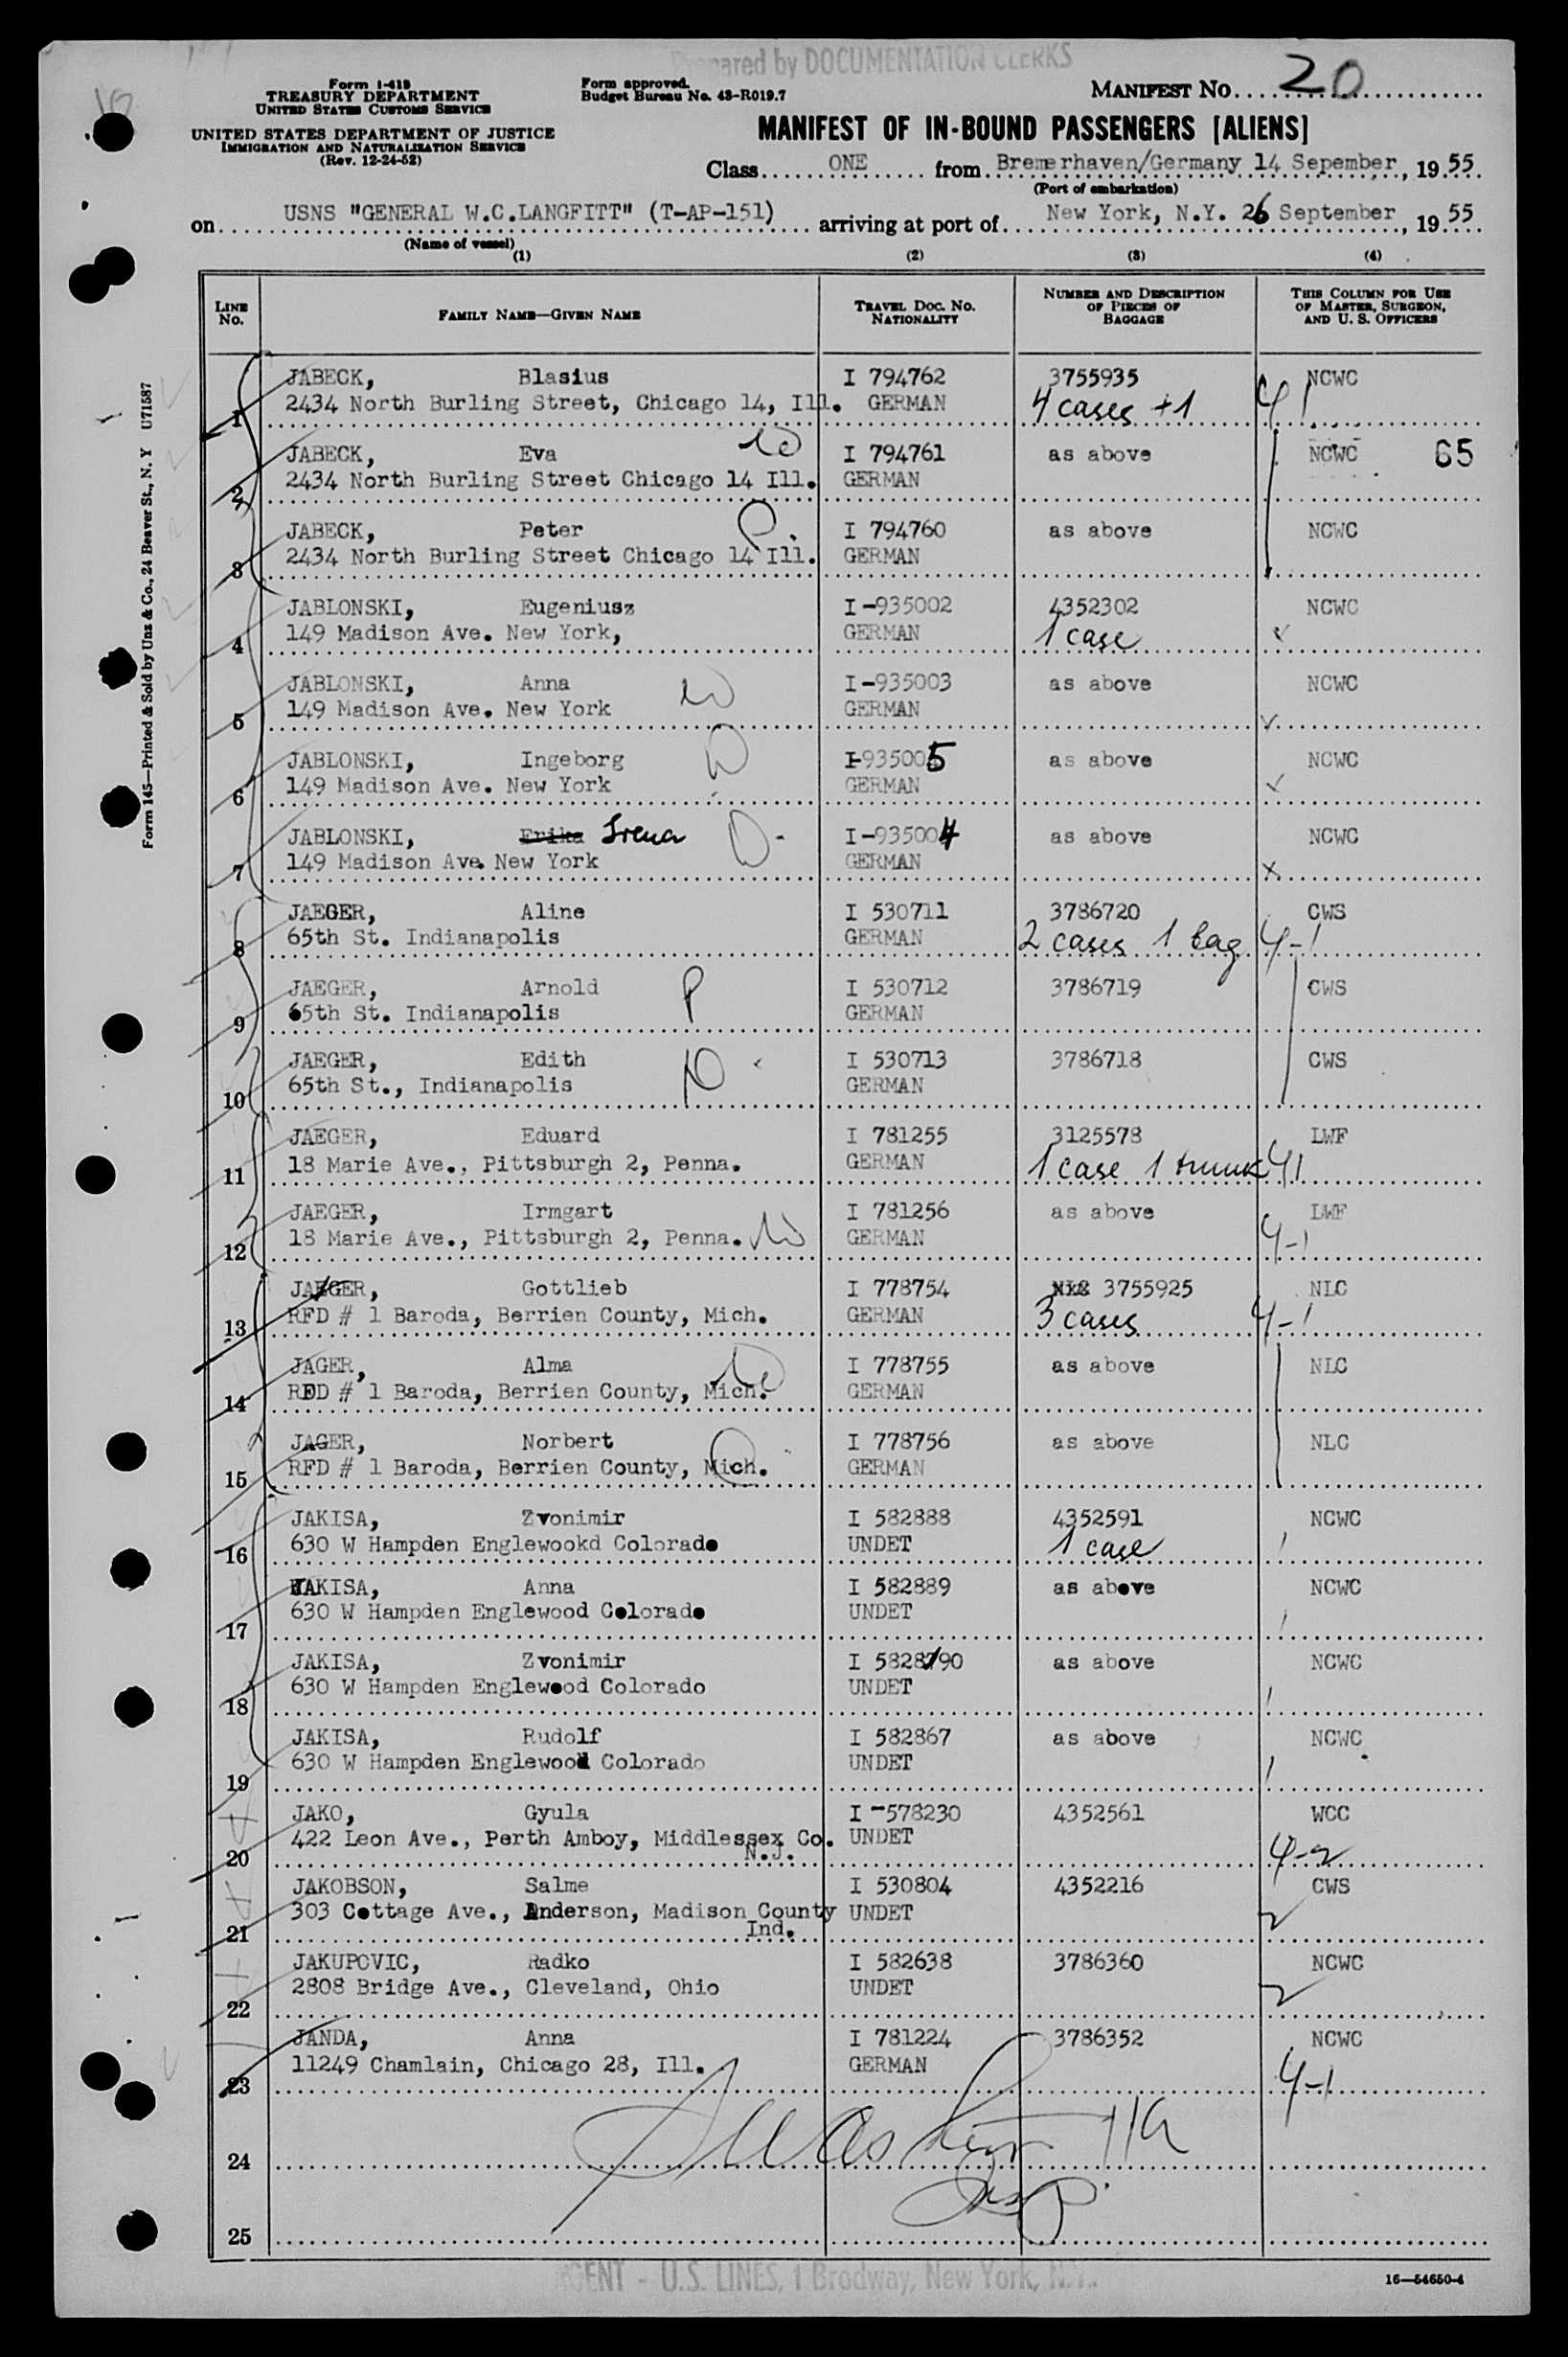 Prepared by DOCUMENTATION CLERKS
Form I-418
TREASURY DEPARTMENT
UNITED STATES CUSTOMS SERVICE
UNITED STATES DEPARTMENT OF JUSTICE
IMMIGRATION AND NATURALIZATION SERVICE
(Rev. 12-24-52)
Form approved.
Budget Bureau No. 43-R019.7
MANIFEST No. 20
MANIFEST OF IN-BOUND PASSENGERS [ALIENS]
Class ONE from Bremerhaven/Germany 14 Sepember, 1955
(Port of embarkation)
on USNS "GENERAL W.C.LANGFITT" (T-AP-151) arriving at port of New York, N.Y. 26 September, 1955
(Name of vessel)
(1) (2) (3) (4)
LINE No. FAMILY NAME—GIVEN NAME TRAVEL DOC. No. NATIONALITY NUMBER AND DESCRIPTION OF PIECES OF BAGGAGE THIS COLUMN FOR USE OF MASTER, SURGEON, AND U. S. OFFICERS
Form 145—Printed & Sold by Unz & Co., 24 Beaver St., N. Y U71587
JABECK, Blasius I 794762 3755935 NCWC
1 2434 North Burling Street, Chicago 14, Ill. GERMAN 4 cases +1 4/
JABECK, Eva I 794761 as above NCWC 65
2 2434 North Burling Street Chicago 14 Ill. GERMAN
JABECK, Peter I 794760 as above NCWC
3 2434 North Burling Street Chicago 14 Ill. GERMAN
JABLONSKI, Eugeniusz I-935002 4352302 NCWC
4 149 Madison Ave. New York, GERMAN 1 case
JABLONSKI, Anna I-935003 as above NCWC
5 149 Madison Ave. New York GERMAN
JABLONSKI, Ingeborg I-935005 as above NCWC
6 149 Madison Ave. New York GERMAN
JABLONSKI, Erika Irena I-935004 as above NCWC
7 149 Madison Ave. New York GERMAN
JAEGER, Aline I 530711 3786720 CWS
8 65th St. Indianapolis GERMAN 2 cases 1 bag 4-1
JAEGER, Arnold I 530712 3786719 CWS
9 65th St. Indianapolis GERMAN
JAEGER, Edith I 530713 3786718 CWS
10 65th St., Indianapolis GERMAN
JAEGER, Eduard I 781255 3125578 LWF
11 18 Marie Ave., Pittsburgh 2, Penna. GERMAN 1 case 1 trunk 41
JAEGER, Irmgart I 781256 as above LWF
12 18 Marie Ave., Pittsburgh 2, Penna. GERMAN 4-1
JAEGER, Gottlieb I 778754 3755925 NLC
13 RFD # 1 Baroda, Berrien County, Mich. GERMAN 3 cases 4-1
JAGER, Alma I 778755 as above NLC
14 RDD # 1 Baroda, Berrien County, Mich. GERMAN
JAGER, Norbert I 778756 as above NLC
15 RFD # 1 Baroda, Berrien County, Mich. GERMAN
JAKISA, Zvonimir I 582888 4352591 NCWC
16 630 W Hampden Englewookd Colorado UNDET 1 case
JAKISA, Anna I 582889 as above NCWC
17 630 W Hampden Englewood Colorado UNDET
JAKISA, Zvonimir I 582890 as above NCWC
18 630 W Hampden Englewood Colorado UNDET
JAKISA, Rudolf I 582867 as above NCWC
19 630 W Hampden Englewood Colorado UNDET
JAKO, Gyula I -578230 4352561 WCC
20 422 Leon Ave., Perth Amboy, Middlessex Co. UNDET 4-2
N.J.
JAKOBSON, Salme I 530804 4352216 CWS
21 303 Cottage Ave., Anderson, Madison County UNDET 2
Ind.
JAKUPOVIC, Radko I 582638 3786360 NCWC
22 2808 Bridge Ave., Cleveland, Ohio UNDET 2
JANDA, Anna I 781224 3786352 NCWC
23 11249 Chamlain, Chicago 28, Ill. GERMAN 4-1
24
25
AGENT - U.S. LINES, 1 Brodway, New York, N.Y.
16—54650-4